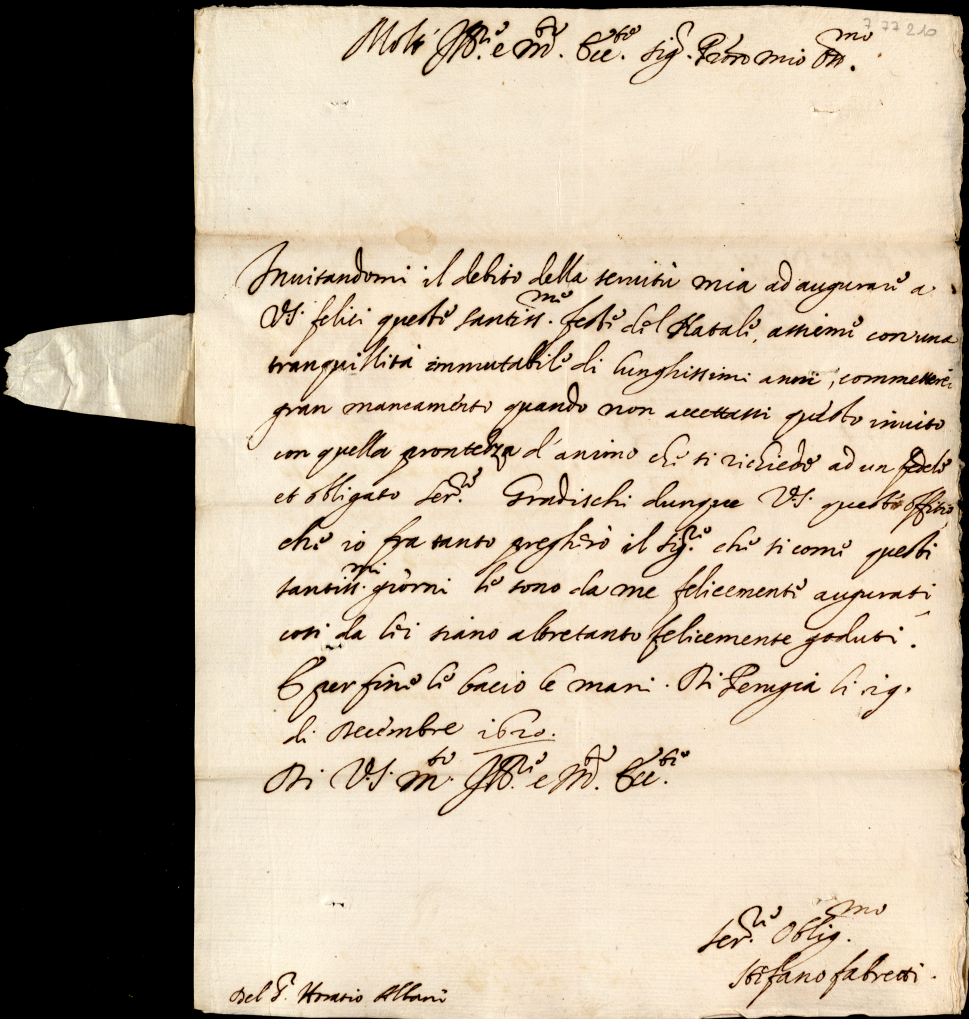 7 77 210
Molt' Ill.re e m.to Ecc.te sig.r P'ron mio oss.mo
Inuitandomi il debito della seruitù mia ad augurare a
V.S. felici queste santiss.me feste del Natale, assieme con una
tranquillità immutabile di lunghissimi anni, commetterei
gran mancamento quando non accettassi questo inuito
con quella prontezza d'animo che si richiede ad un fedele
et obligato ser.re Gradischi dunque V.S. questo offitio
che io fra tanto pregherò il sig.re che si come questi
santiss.mi giorni le sono da me felicemente augurati
cosi da lei siano altretanto felicemente goduti.
E per fine le bacio le mani. Di Perugia li 19.
di Decembre 1620.
Di V.S. m.to Ill.re e M.to Ecc.te
Ser.re Oblig.mo
Stefano fabretti.
Del S. Horatio Albani